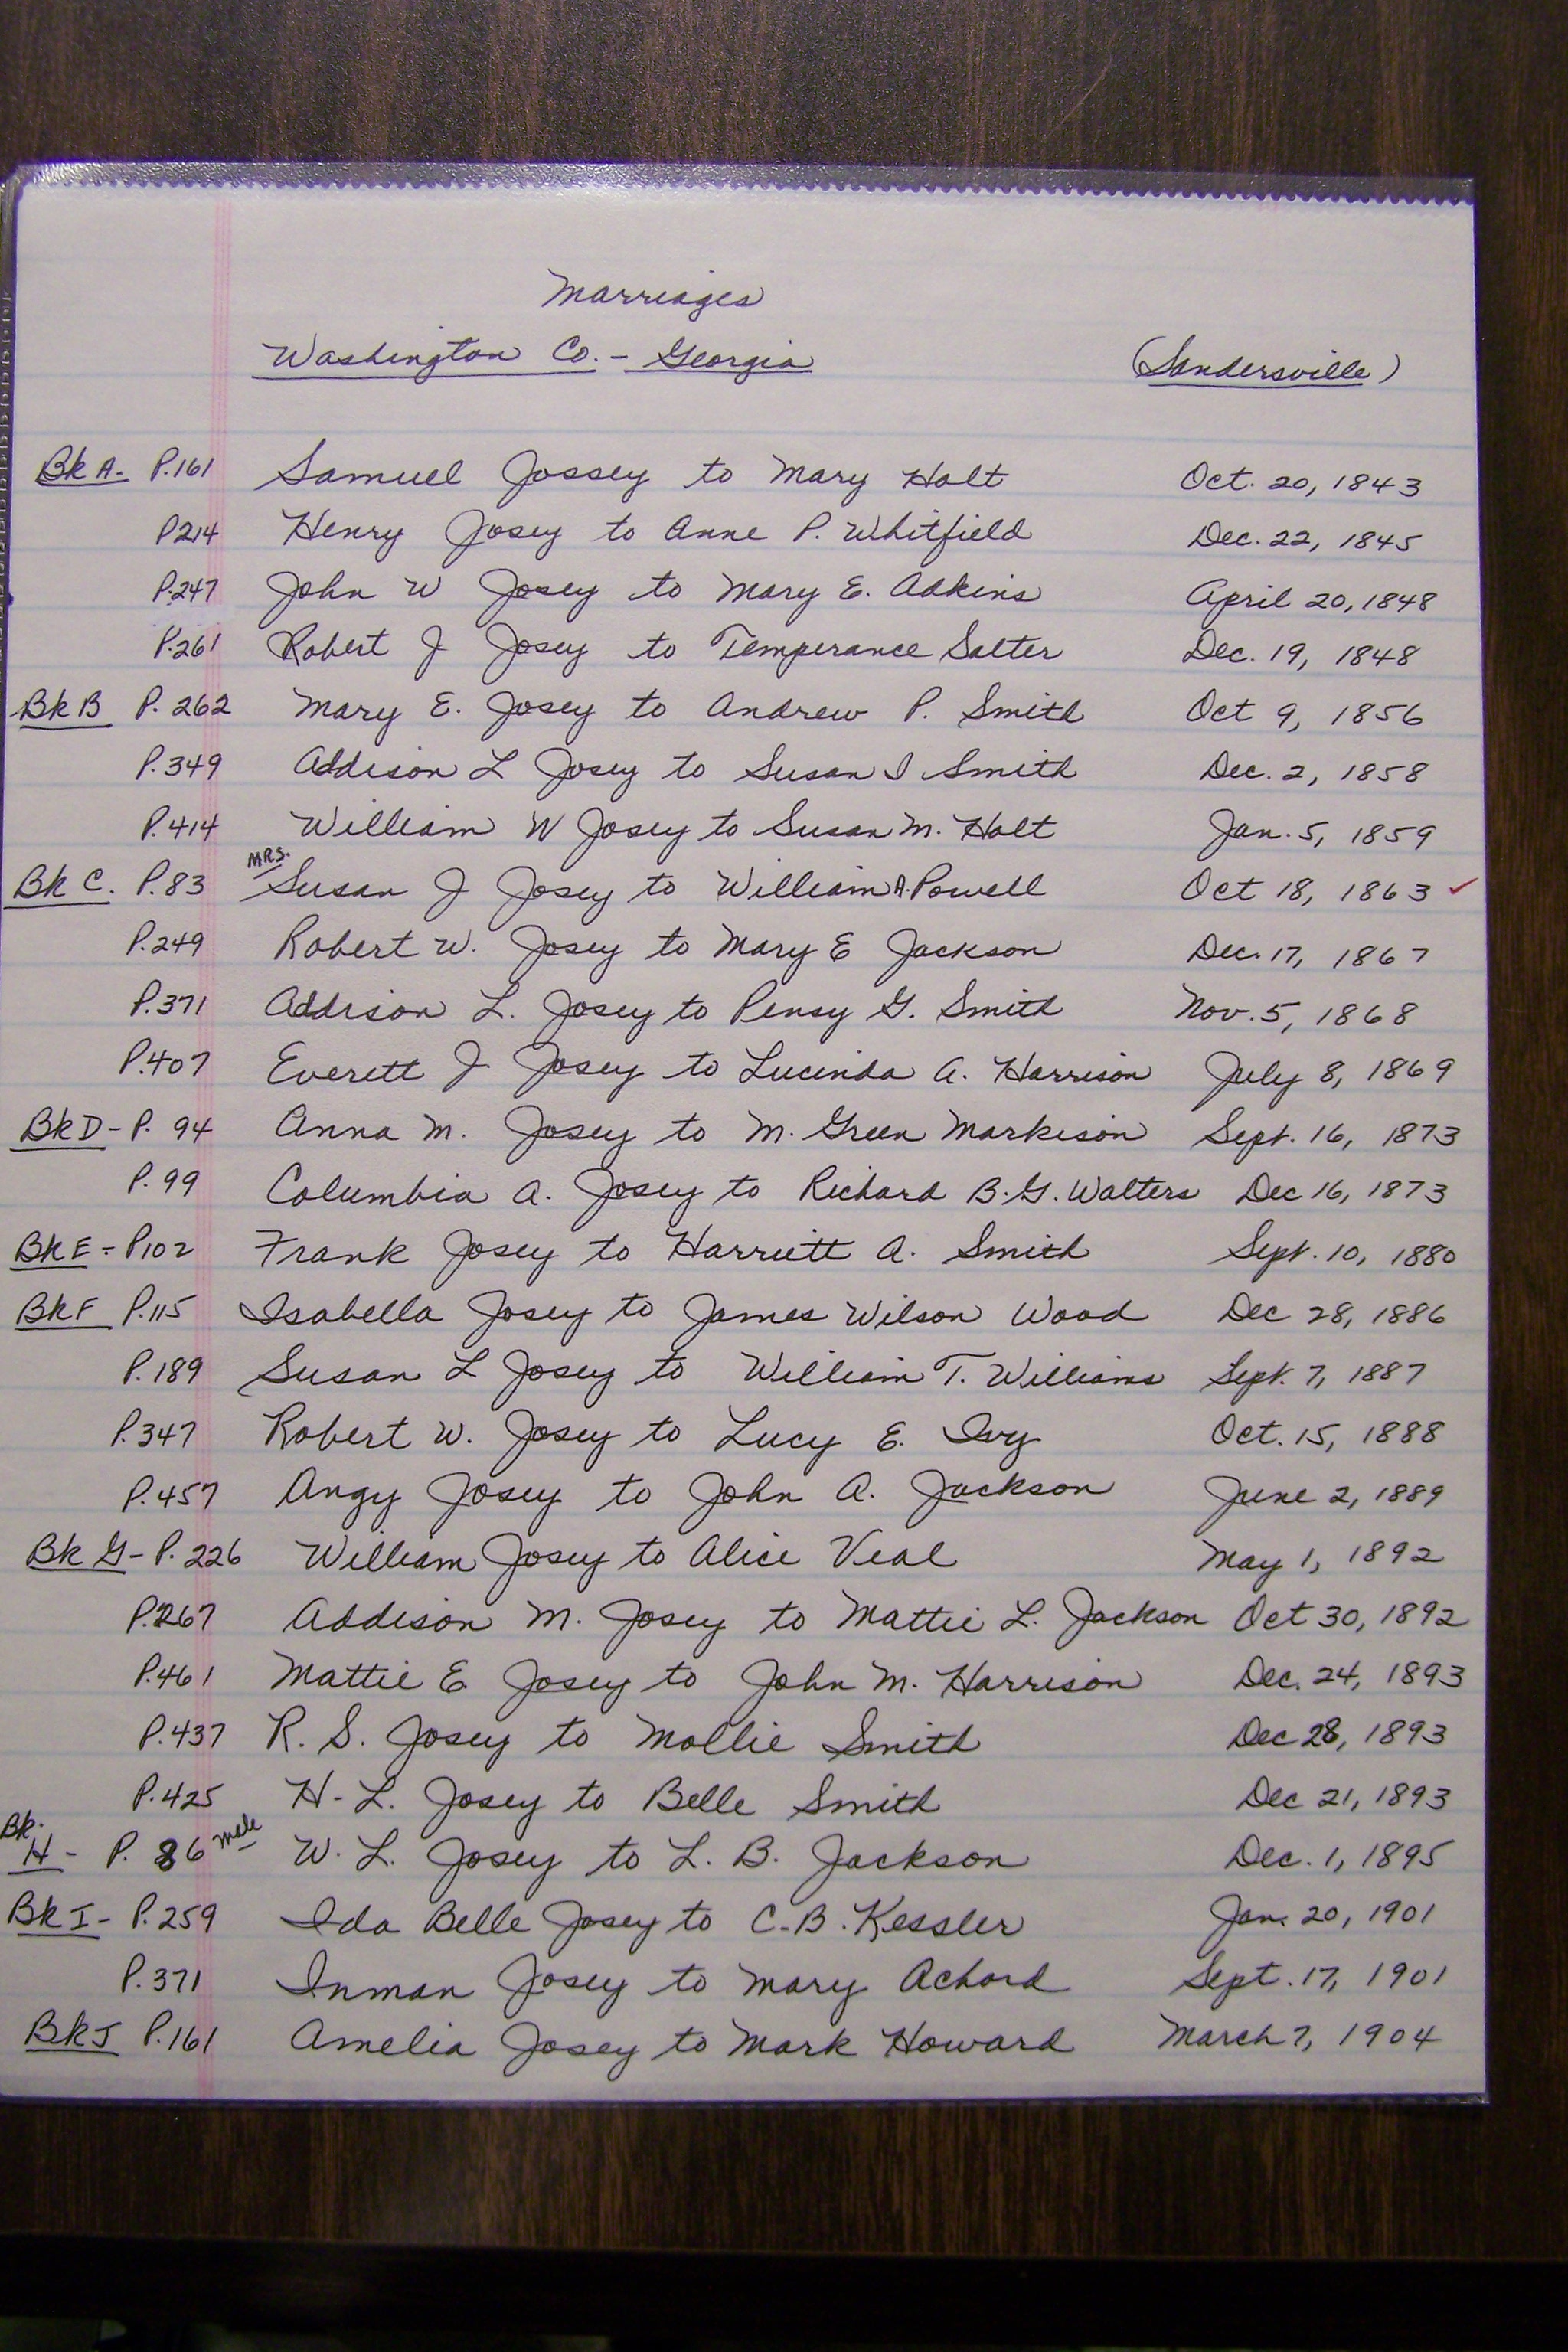 Marriages
Washington Co. - Georgia (Sandersville)
Bk A- P.161 Samuel Jossey to Mary Holt Oct. 20, 1843
P214 Henry Josey to Anne P. Whitfield Dec. 22, 1845
P.247 John W Josey to Mary E. Adkins April 20, 1848
P.261 Robert J Josey to Temperance Salter Dec. 19, 1848
Bk B P. 262 Mary E. Josey to Andrew P. Smith Oct 9, 1856
P.349 Addison L Josey to Susan I Smith Dec. 2, 1858
P.414 William W Josey to Susan M. Holt Jan. 5, 1859
Bk C. P.83 MRS. Susan J Josey to William A. Powell Oct 18, 1863 ✓
P.249 Robert W. Josey to Mary E Jackson Dec. 17, 1867
P.371 Addison L. Josey to Pensy G. Smith Nov. 5, 1868
P.407 Everett J Josey to Lucinda A. Harrison July 8, 1869
Bk D - P. 94 Anna M. Josey to M. Green Markison Sept. 16, 1873
P. 99 Columbia A. Josey to Richard B.G. Walters Dec 16, 1873
Bk E - P102 Frank Josey to Harriett A. Smith Sept. 10, 1880
Bk F P.115 Isabella Josey to James Wilson Wood Dec 28, 1886
P.189 Susan L Josey to William T. Williams Sept. 7, 1887
P.347 Robert W. Josey to Lucy E. Ivy Oct. 15, 1888
P.457 Angy Josey to John A. Jackson June 2, 1889
Bk G - P. 226 William Josey to Alice Veal May 1, 1892
P.267 Addison M. Josey to Mattie L. Jackson Oct 30, 1892
P.461 Mattie E Josey to John M. Harrison Dec. 24, 1893
P.437 R. S. Josey to Mollie Smith Dec 28, 1893
P.425 H-L. Josey to Belle Smith Dec 21, 1893
Bk. H - P. 86 male W. L. Josey to L. B. Jackson Dec. 1, 1895
Bk I - P. 259 Ida Belle Josey to C-B. Kessler Jan. 20, 1901
P.371 Inman Josey to Mary Achord Sept. 17, 1901
Bk J P.161 Amelia Josey to Mark Howard March 7, 1904